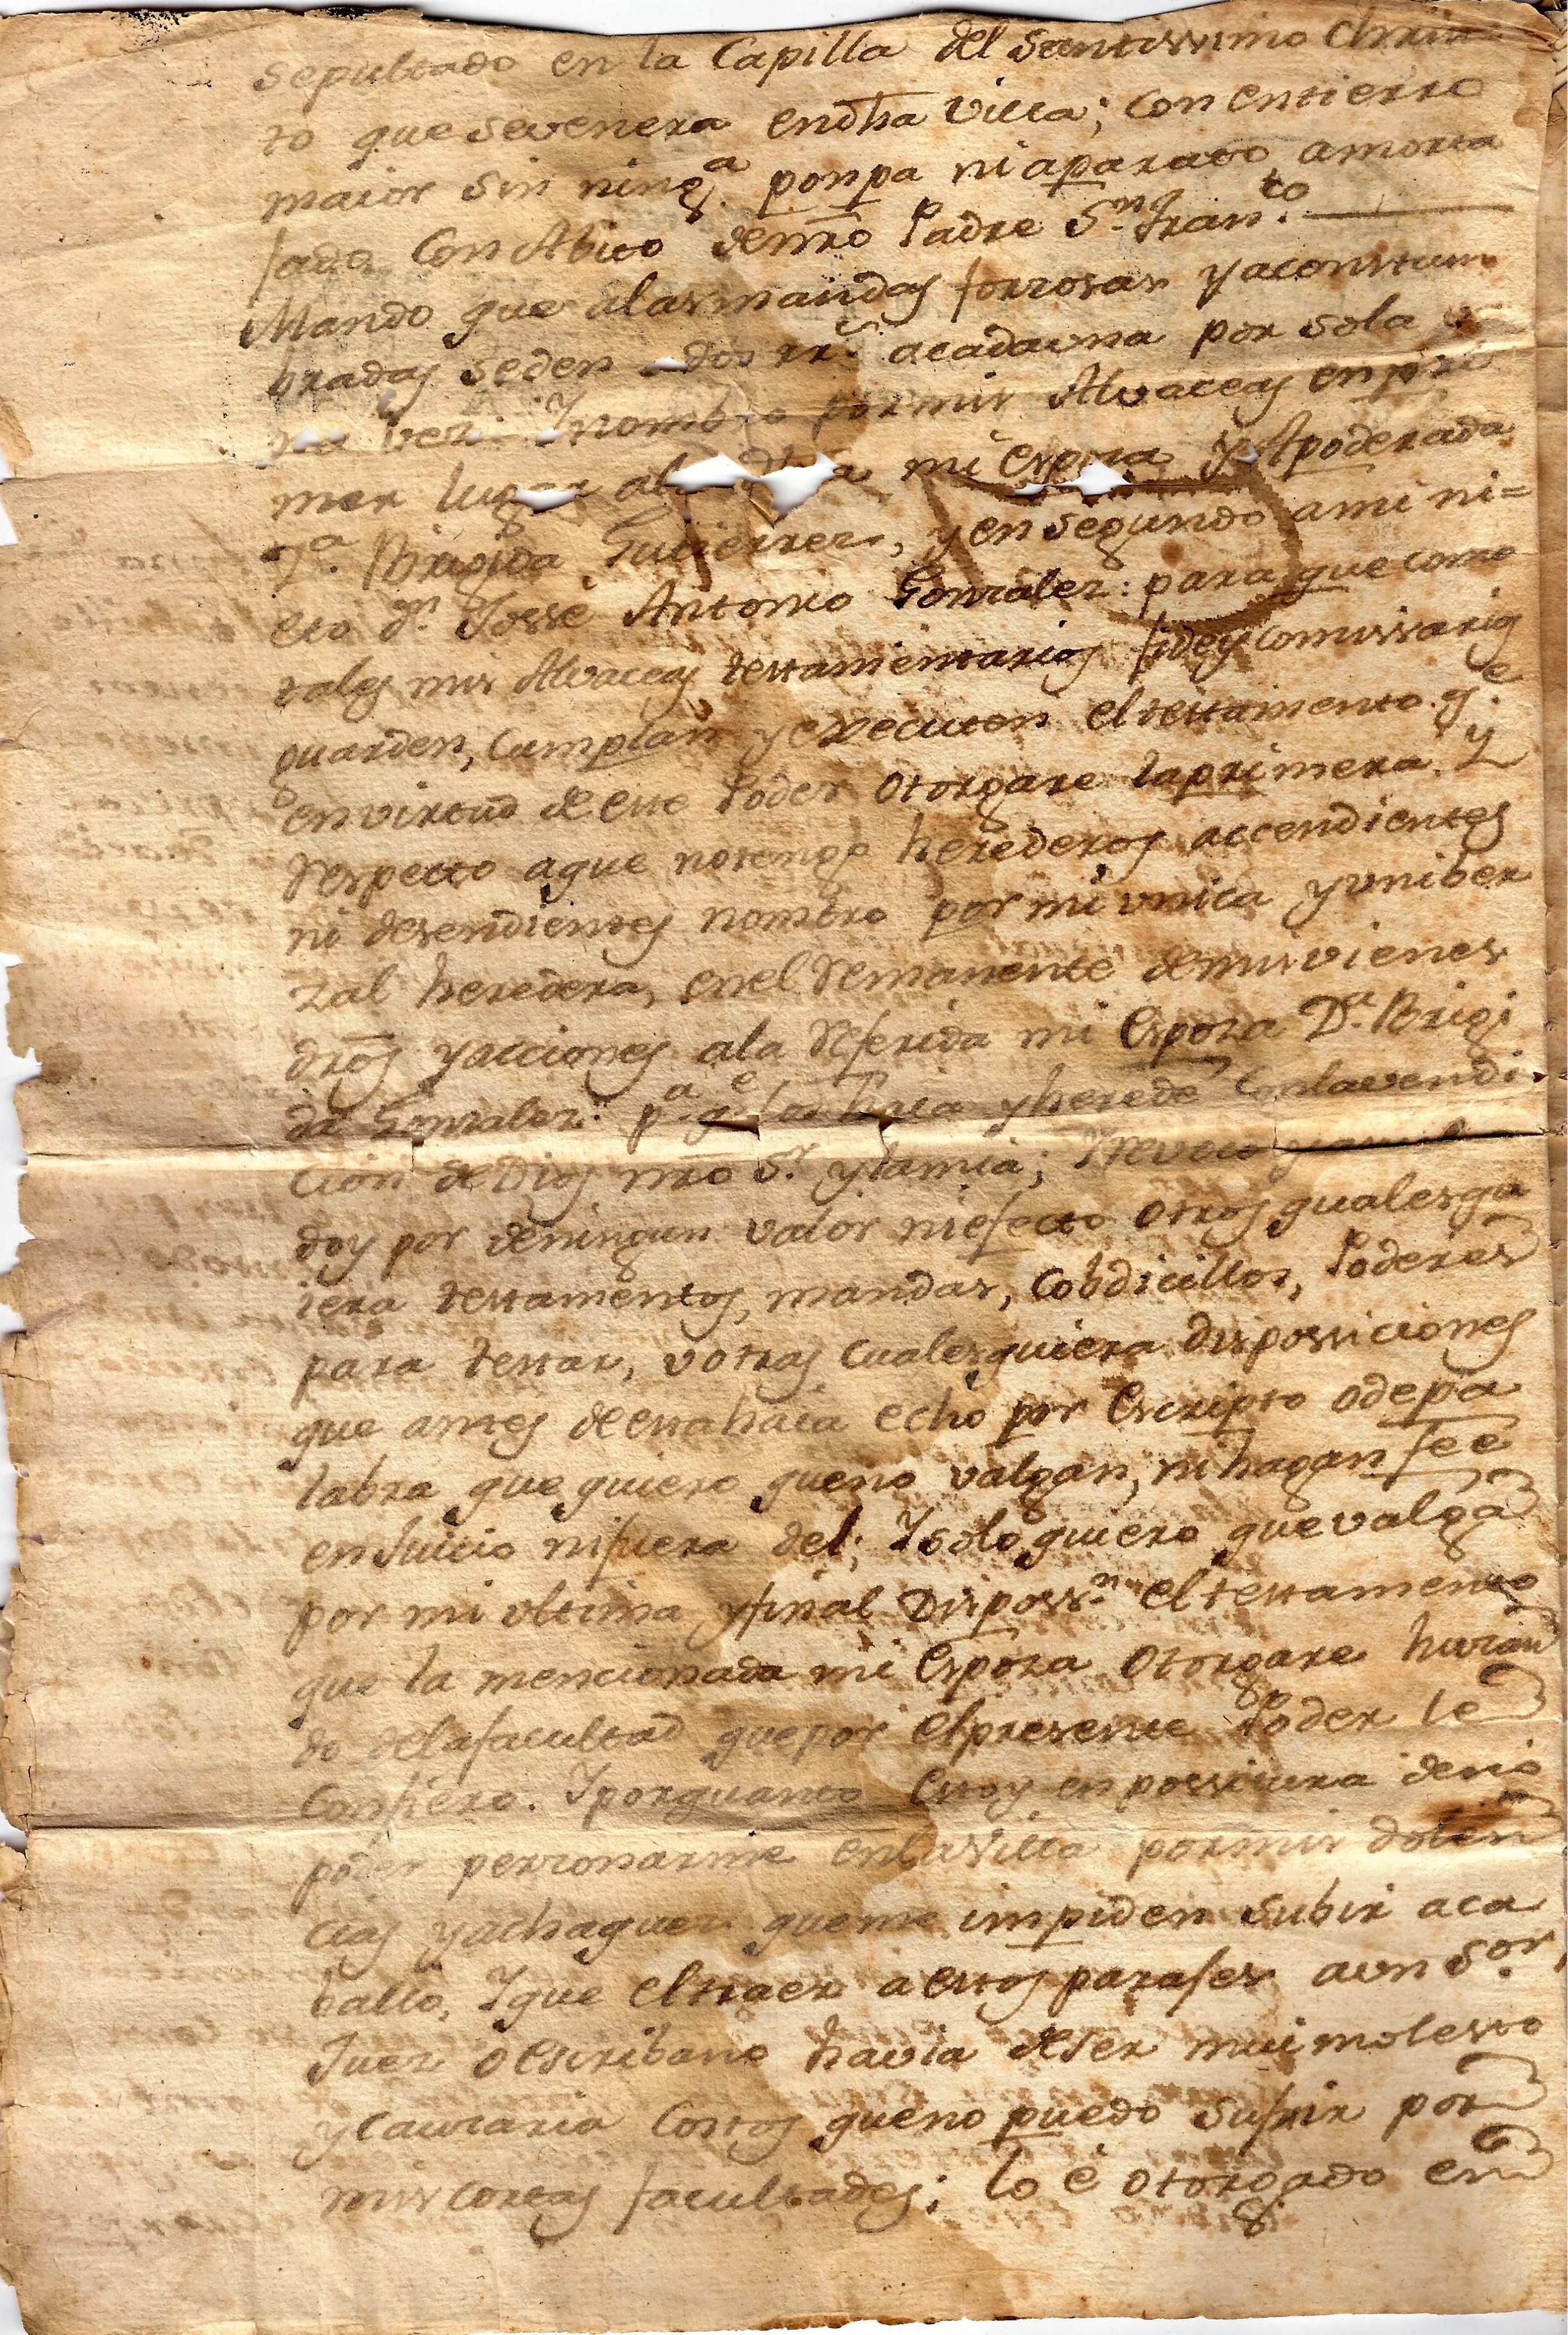 sepultado en la Capilla del Santissimo Chris
to que se venera en dha Villa; con entierro
maior sin ning.a ponpa ni aparato amorta
jado Con Abito de nro Padre S.n Fran.co
Mando que a las mandas forzosas y acostum
bradas se den dos rr.s a cada una por sola u
na vez. Y nombro por mis Alvaceas en pri
mer lugar a la dha mi Espoza y Apoderada
D.a Brigida Gutierrez, y en segundo a mi ni=
eto d.n Josse Antonio Gonzalez: para que como
tales mis Alvaceas testamentarios fideycomissarios
guarden, cumplan y executen el testamento q.e
en virtud de este Poder otorgare la primera. Y
respecto a que no tengo herederos accendientes
ni desendientes nombro por mi unica y uniber
zal heredera, en el remanente de mis vienes
dros y acciones a la referida mi Espoza D.a Brigi
da Gonzalez: p.a q.e los haia y herede con la vendi
cion de Dios nro S.r y la mia; Y revoco y
doy por de ningun valor ni efecto otros qualesqu
iera testamentos, mandas, Cobdicillos, Poderes
para testar, u otras cualesquiera dispossiciones
que antes de esta haia echo por Escripto o de pa
labra que quiero que no valgan, ni hagan fee
en Juicio ni fuera del; Y solo quiero que valga
por mi ultima y final Disposs.n el testamento
que la mencionada mi Espoza otorgare huzan
do de la facultad que por el presente Poder le
Confiero. Y por quanto Estoy en possitura de no
poder perzonarme en la Villa por mis dolen
cias y achaques que me impiden subir a ca
ballo, Y que el traer a estos parajes a un S.or
Juez o Escribano havia de ser mui molesto
y causaria Costos que no puedo sufrir por
mis cortas facultades; lo é otorgado en